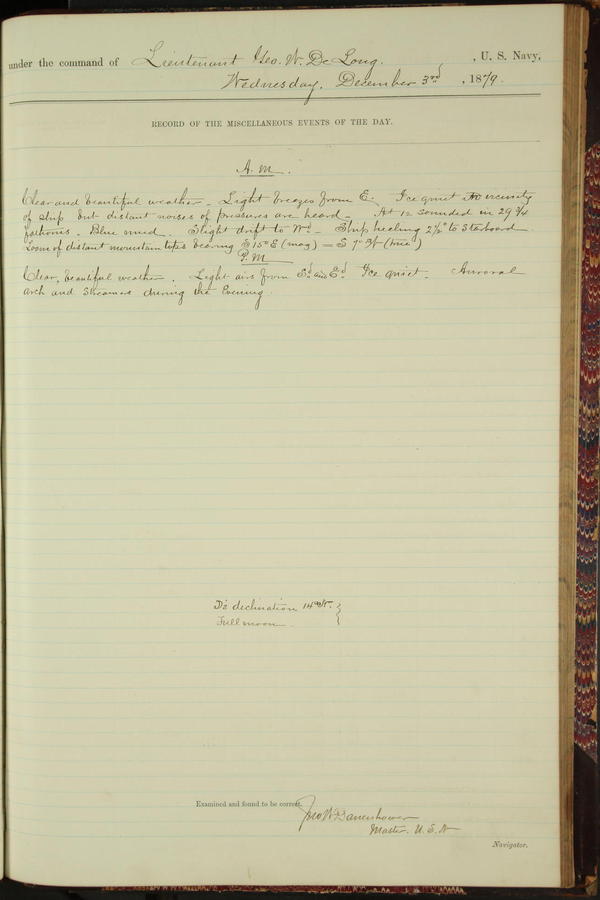 under the command of Lieutenant Geo. W. De Long. , U. S. Navy,
Wednesday, December 3rd , 1879.
RECORD OF THE MISCELLANEOUS EVENTS OF THE DAY.
A.M.
Clear and beautiful weather - Light breezes from E. Ice quiet in vicinity
of ship but distant noises of pressures are heard - At 12 sounded in 29 3/4
fathoms. Blue mud. Slight drift to Wd - Ship heeling 2 1/2° to Starboard
Loom of distant mountain tops bearing S 15° E (mag) = S 7° W (true)
P.M.
Clear, beautiful weather. Light airs from Sd and Ed Ice quiet. Auroral
arch and streamers during the Evening.
declination 14° N. }
Full moon
Examined and found to be correct. Jno W Danenhower
Master. U.S.N
Navigator.